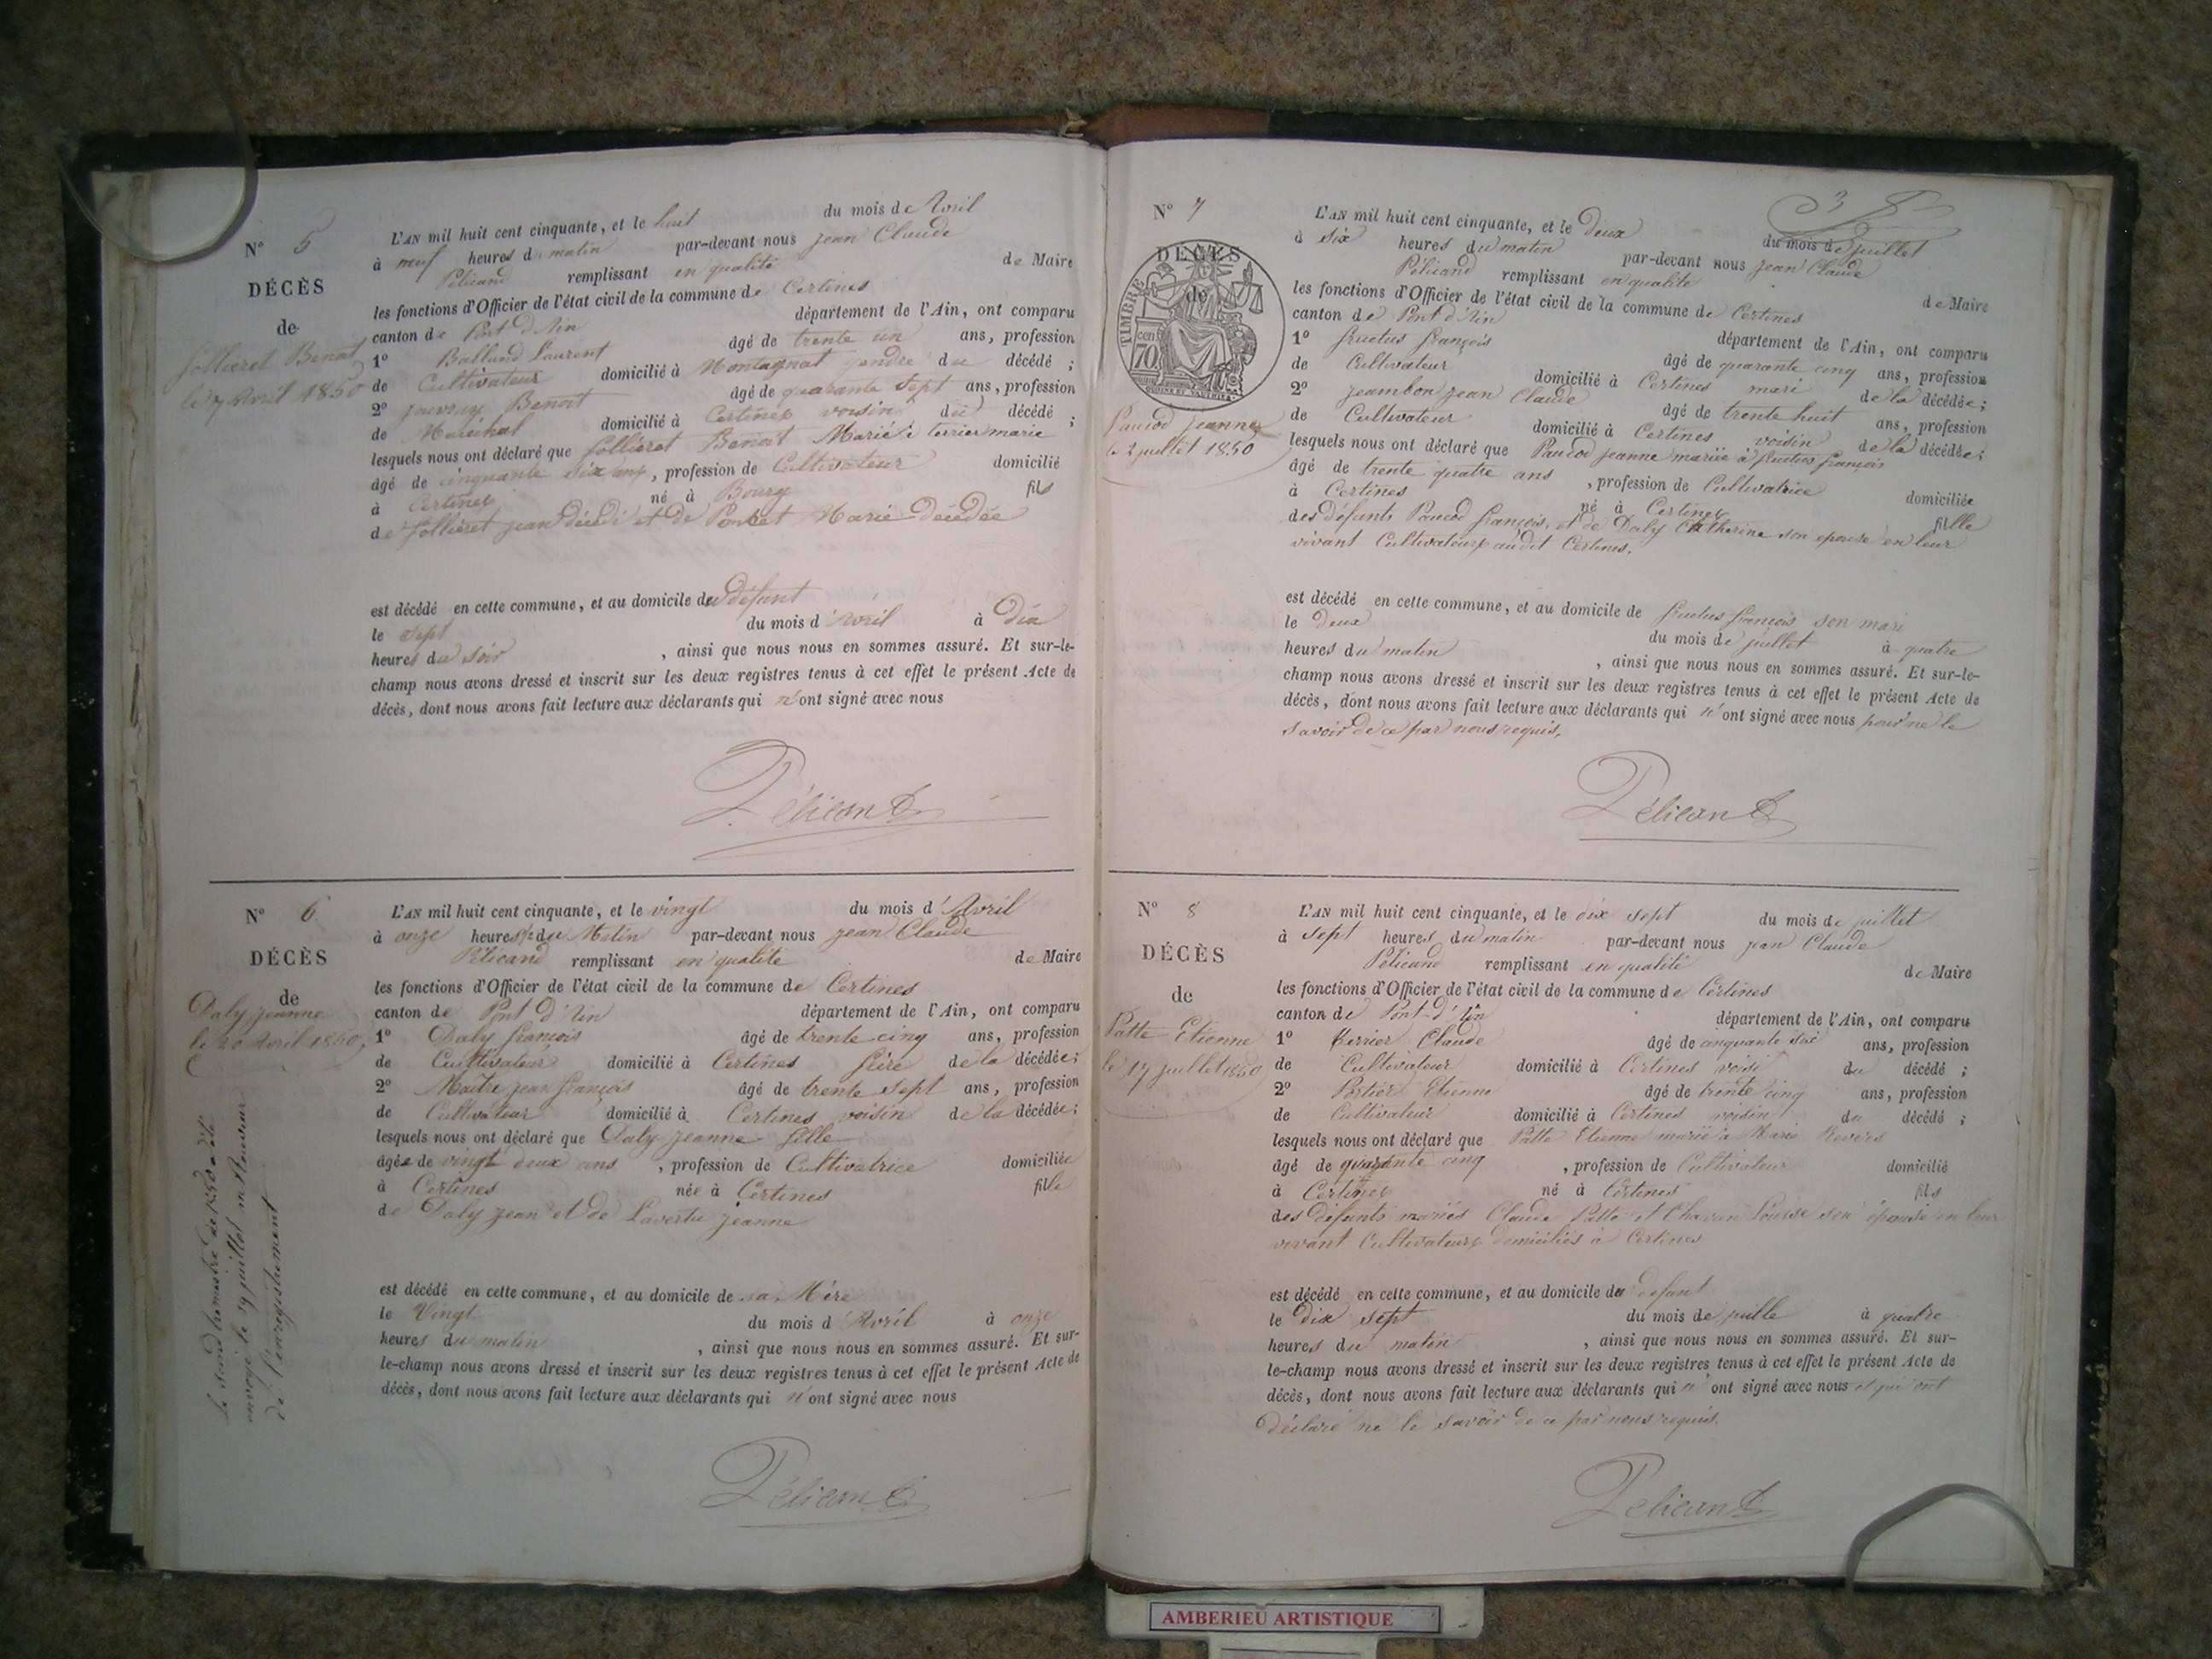 N° 5
DÉCÈS
de
Jollieret Benoit
le 7 Avril 1850
L'AN mil huit cent cinquante, et le huit du mois de Avril
à neuf heures du matin par-devant nous jean Claude
Pélicand remplissant en qualité de Maire
les fonctions d'Officier de l'état civil de la commune de Certines
canton de Pont d'Ain département de l'Ain, ont comparu
1° Balland Laurent âgé de trente un ans, profession
de Cultivateur domicilié à Montagnat gendre du décédé ;
2° Benoit âgé de quarante sept ans, profession
de Maréchal domicilié à Certines voisin du décédé ;
lesquels nous ont déclaré que Jollieret Benoit Marié à terrier marie
âgé de cinquante six ans, profession de Cultivateur domicilié
à Certines né à Bourg fils
de Jollieret jean décédé et de Marie décédée
est décédé en cette commune, et au domicile du défunt
le sept du mois d'Avril à Dix
heures du soir , ainsi que nous nous en sommes assuré. Et sur-le-
champ nous avons dressé et inscrit sur les deux registres tenus à cet effet le présent Acte de
décès, dont nous avons fait lecture aux déclarants qui n'ont signé avec nous
Pélicand
N° 6
DÉCÈS
de
Daly jeanne
le 20 Avril 1850,
Le second trimestre de 1850 a été
envoyé le 19 juillet m Receveur
de l'enregistrement
L'AN mil huit cent cinquante, et le vingt du mois d'Avril
à onze heures du Matin par-devant nous jean Claude
Pélicand remplissant en qualité de Maire
les fonctions d'Officier de l'état civil de la commune de Certines
canton de Pont d'Ain département de l'Ain, ont comparu
1° Daly françois âgé de trente cinq ans, profession
de Cultivateur domicilié à Certines frère de la décédée;
2° Maitre jean françois âgé de trente sept ans, profession
de Cultivateur domicilié à Certines voisin de la décédée;
lesquels nous ont déclaré que Daly jeanne fille
âgée de vingt deux ans , profession de Cultivatrice domiciliée
à Certines née à Certines fille
de Daly jean et de Lavertu jeanne
est décédé en cette commune, et au domicile de sa Mère
le Vingt du mois d'Avril à onze
heures du matin , ainsi que nous nous en sommes assuré. Et sur-
le-champ nous avons dressé et inscrit sur les deux registres tenus à cet effet le présent Acte de
décès, dont nous avons fait lecture aux déclarants qui n'ont signé avec nous
Pélicand
N° 7
DÉCÈS
de
TIMBRE
70 cen
Paucod jeanne
le 2 juillet 1850
38
L'AN mil huit cent cinquante, et le deux du mois de juillet
à six heures du matin par-devant nous jean Claude
Pélicand remplissant en qualité de Maire
les fonctions d'Officier de l'état civil de la commune de Certines
canton de Pont d'Ain département de l'Ain, ont comparu
1° fructus françois âgé de quarante cinq ans, profession
de Cultivateur domicilié à Certines mari de la décédée;
2° jeambon jean Claude âgé de trente huit ans, profession
de Cultivateur domicilié à Certines voisin de la décédée;
lesquels nous ont déclaré que Paucod jeanne mariée à fructus françois
âgé de trente quatre ans , profession de Cultivatrice domiciliée
à Certines né à Certines fille
des défunts Paucod françois, et de Daly Catherine son epouse en leur
vivant Cultivateurs audit Certines.
est décédé en cette commune, et au domicile de fructus françois son mari
le deux du mois de juillet à quatre
heures du matin , ainsi que nous nous en sommes assuré. Et sur-le-
champ nous avons dressé et inscrit sur les deux registres tenus à cet effet le présent Acte de
décès, dont nous avons fait lecture aux déclarants qui n'ont signé avec nous pour ne le
savoir de ce par nous requis.
Pélicand
N° 8
DÉCÈS
de
Patte Etienne
le 17 juillet 1850
L'AN mil huit cent cinquante, et le dix sept du mois de juillet
à sept heures du matin par-devant nous jean Claude
Pélicand remplissant en qualité de Maire
les fonctions d'Officier de l'état civil de la commune de Certines
canton de Pont-d'Ain département de l'Ain, ont comparu
1° Claude âgé de cinquante six ans, profession
de Cultivateur domicilié à Certines voisi du décédé ;
2° Portier Etienne âgé de trente cinq ans, profession
de Cultivateur domicilié à Certines voisin du décédé ;
lesquels nous ont déclaré que Patte Etienne marié à Marie
âgé de quarante cinq , profession de Cultivateur domicilié
à Certines né à Certines fils
des défunts mariés Claude Patte et Louise son épouse en leur
vivant Cultivateurs domiciliés à Certines
est décédé en cette commune, et au domicile du defunt
le dix sept du mois de juille à quatre
heures du matin , ainsi que nous nous en sommes assuré. Et sur-
le-champ nous avons dressé et inscrit sur les deux registres tenus à cet effet le présent Acte de
décès, dont nous avons fait lecture aux déclarants qui n'ont signé avec nous et qui ont
déclaré ne le savoir de ce par nous requis.
Pélicand
AMBERIEU ARTISTIQUE